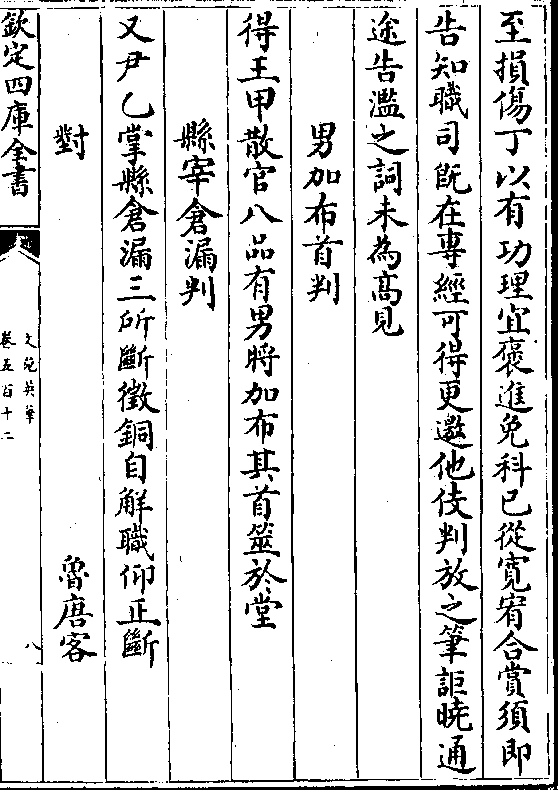 至損傷丁以有功理宜襃進免科已從寛宥合賞須即
告知職司既在專經可得更邀他伎判放之筆詎曉通
途告濫之詞未為髙見
男加布首判
得王甲散官八品有男將加布其首筮於堂
縣宰倉漏判
又尹乙掌縣倉漏三所斷徵銅自解職仰正斷
對
魯唐客
欽定四庫全書
文苑英華
卷五百十二
八